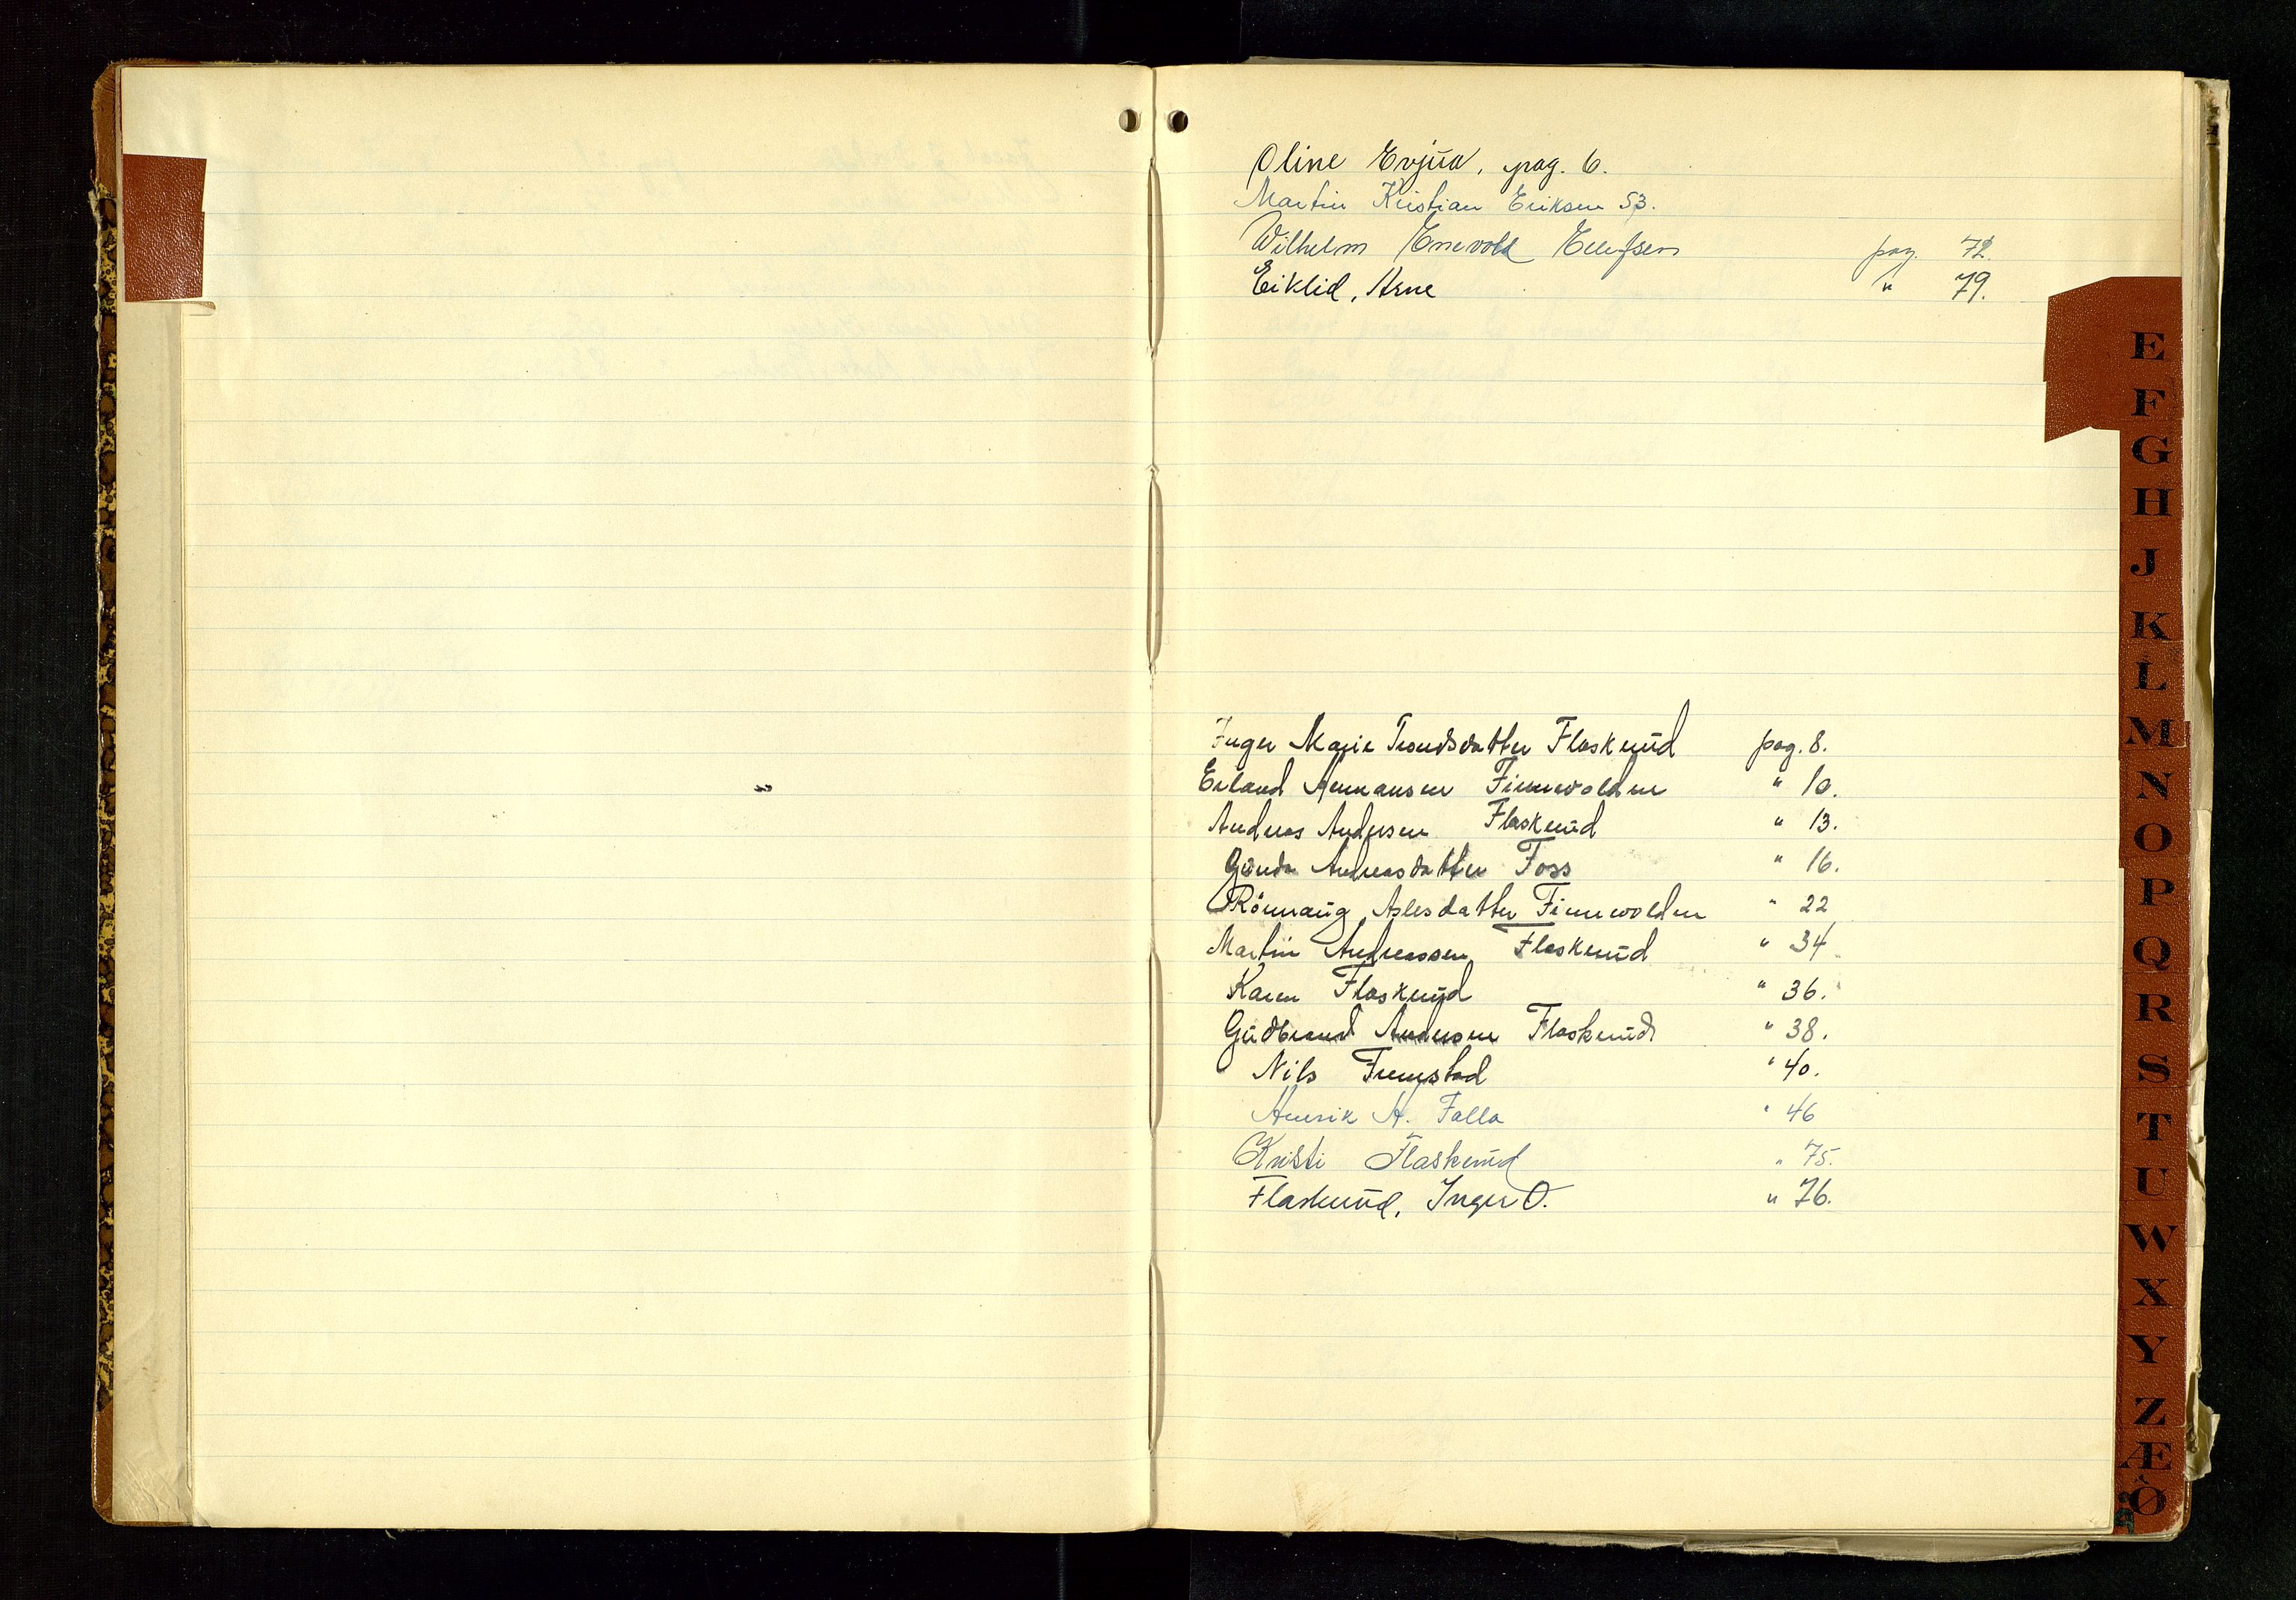 Oline Evjua, pag. 6.
Martin Kristian Eriksen 53.
Wilhelm Enevold Ellefsen pag. 72.
Eiklid, Arne " 79.
Inger Marie Trondsdatter Flaskerud pag. 8.
Erland Hermansen Finnevolden " 10.
Andreas Andersen Flaskerud " 13.
Gunda Andreasdatter Foss " 16.
Rönnaug Aslesdatter Finnevolden " 22
Martin Andreassen Flaskerud " 34
Karen Flaskerud " 36.
Gudbrand Andersen Flaskerud " 38.
Nils " 40.
Henrik A. Falla " 46
Kristi Flaskerud " 75.
Flaskerud, Inger O. " 76.
E
F
G
H
J
K
L
M
N
O
P
Q
R
S
T
U
W
X
Y
Z
Æ
Ø